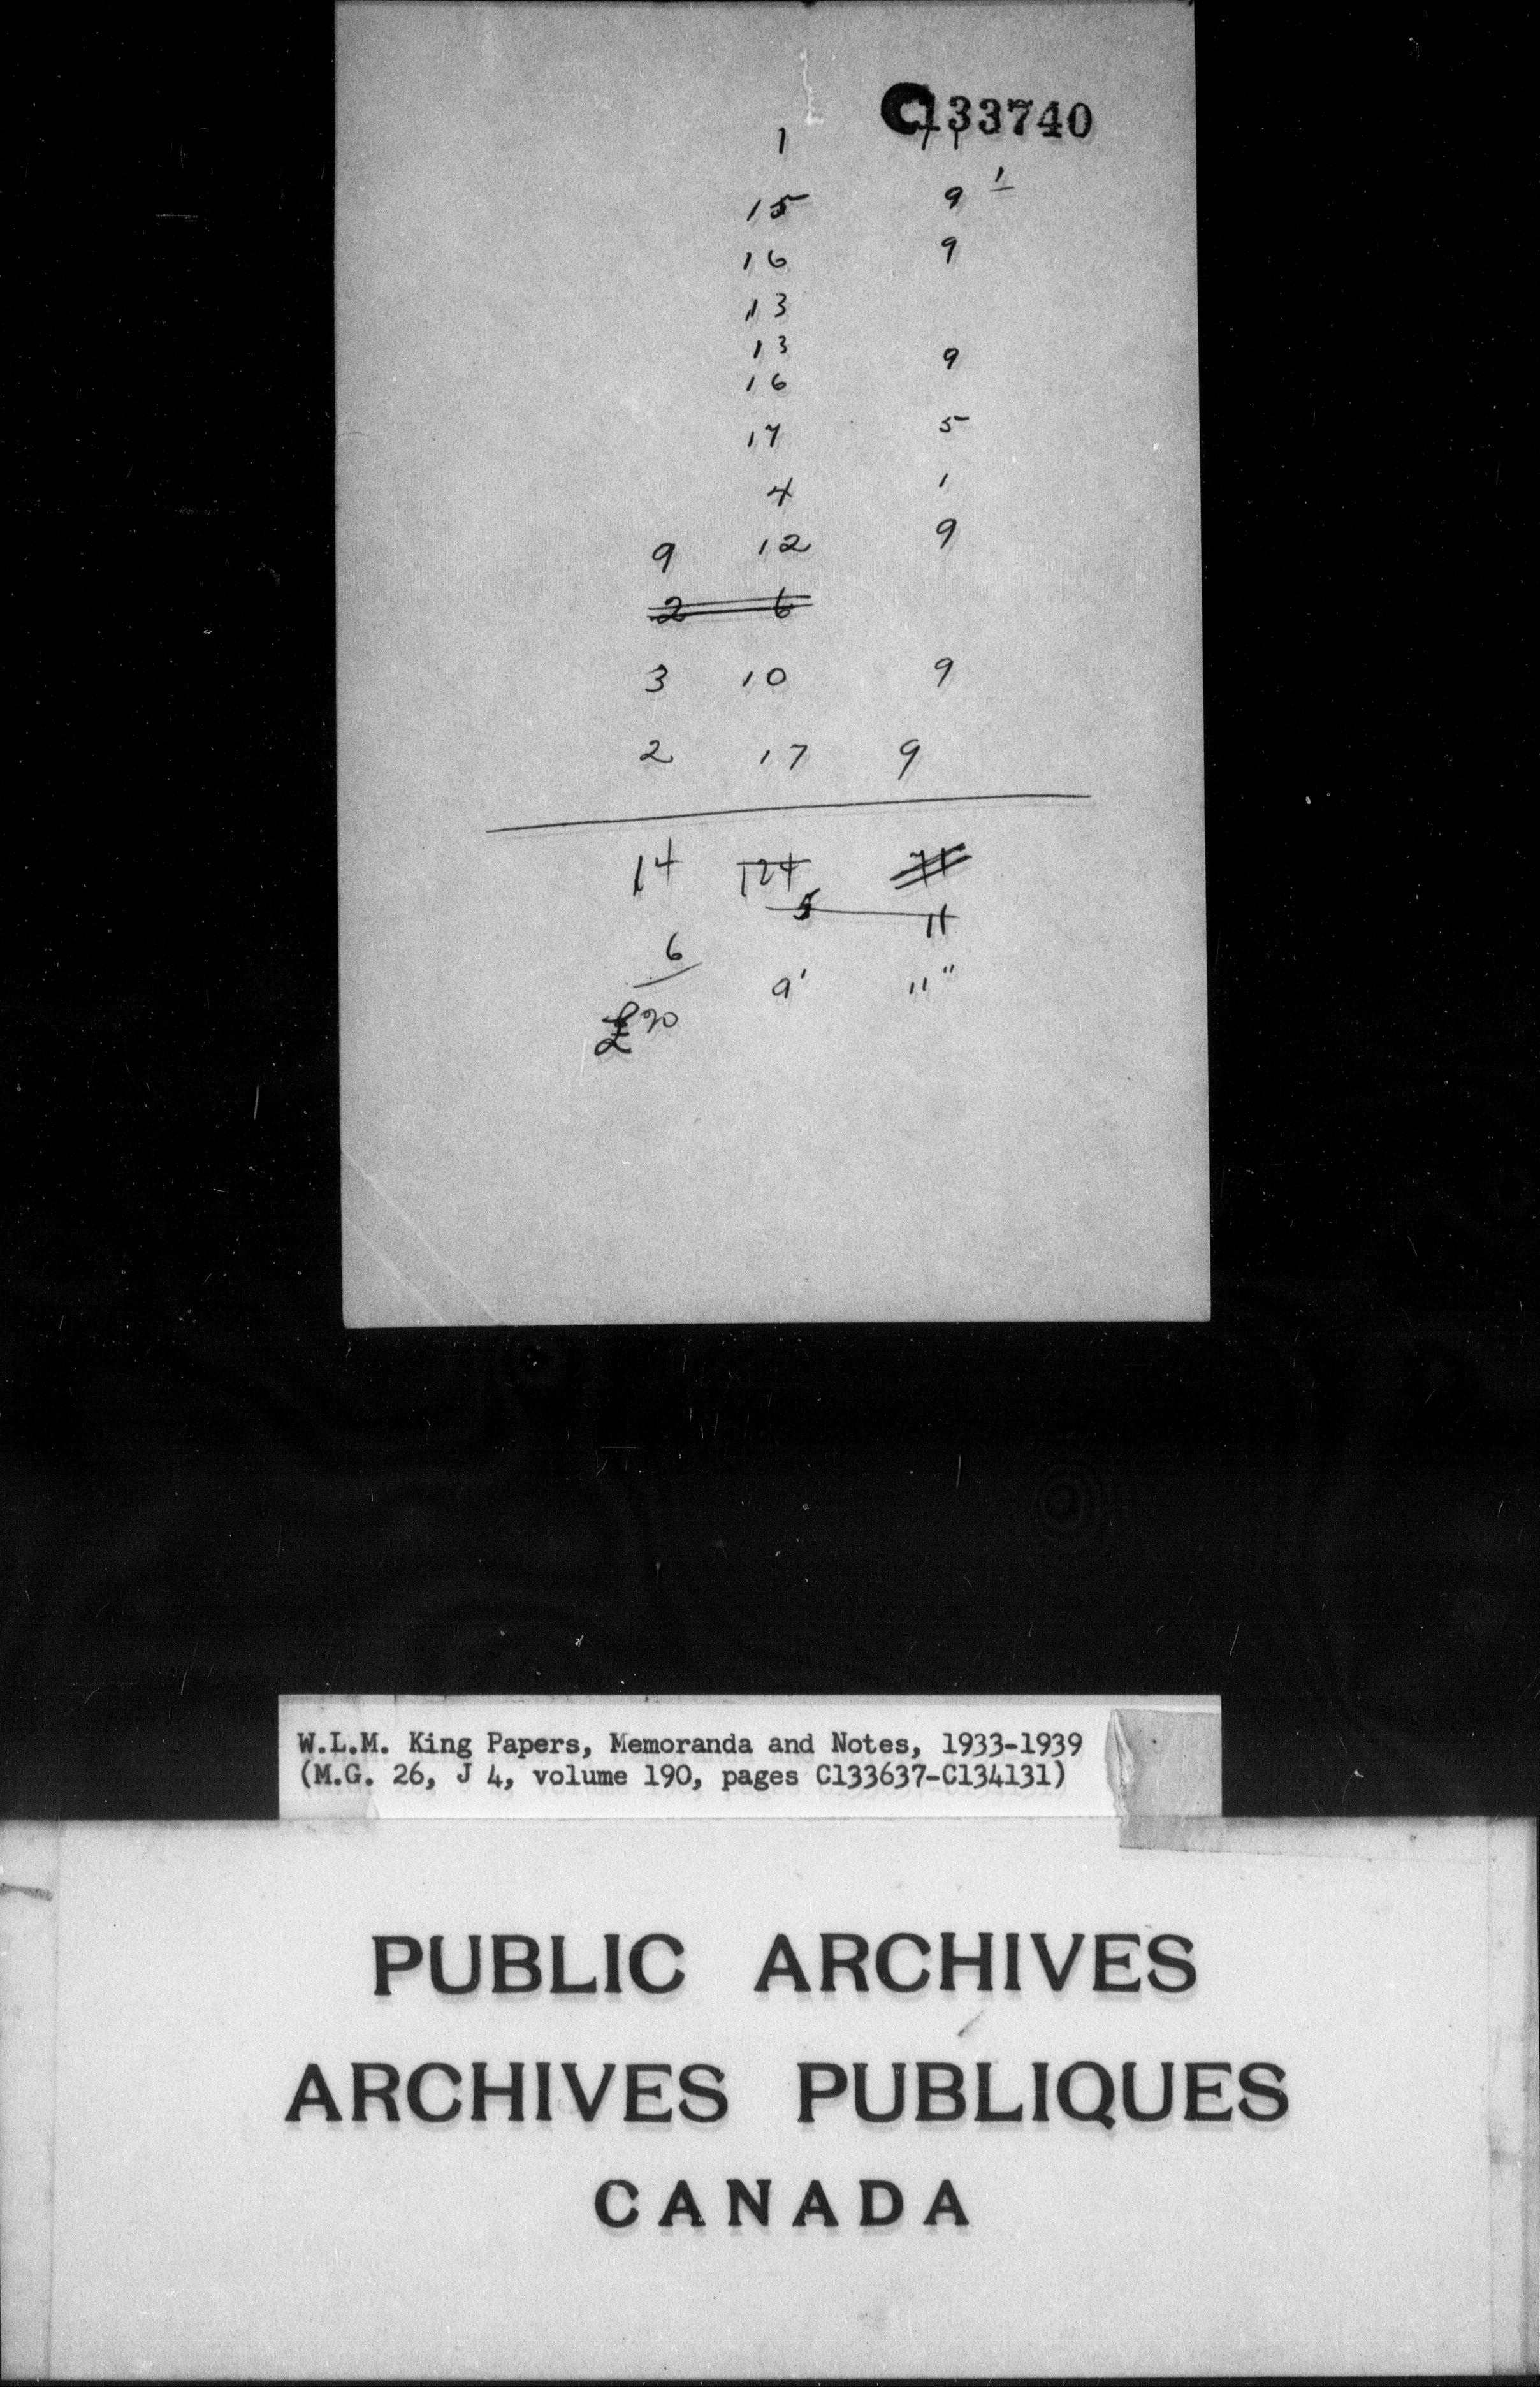 C133740
1 11
15 9 1
16 9
13
13 9
16
17 5
4 1
9 12 9
2 6
3 10 9
2 17 9
14 124 71
5 11
6
9' 11"
£20
W.L.M. King Papers, Memoranda and Notes, 1933-1939
(M.G. 26, J 4, volume 190, pages C133637-C134131)
PUBLIC ARCHIVES
ARCHIVES PUBLIQUES
CANADA